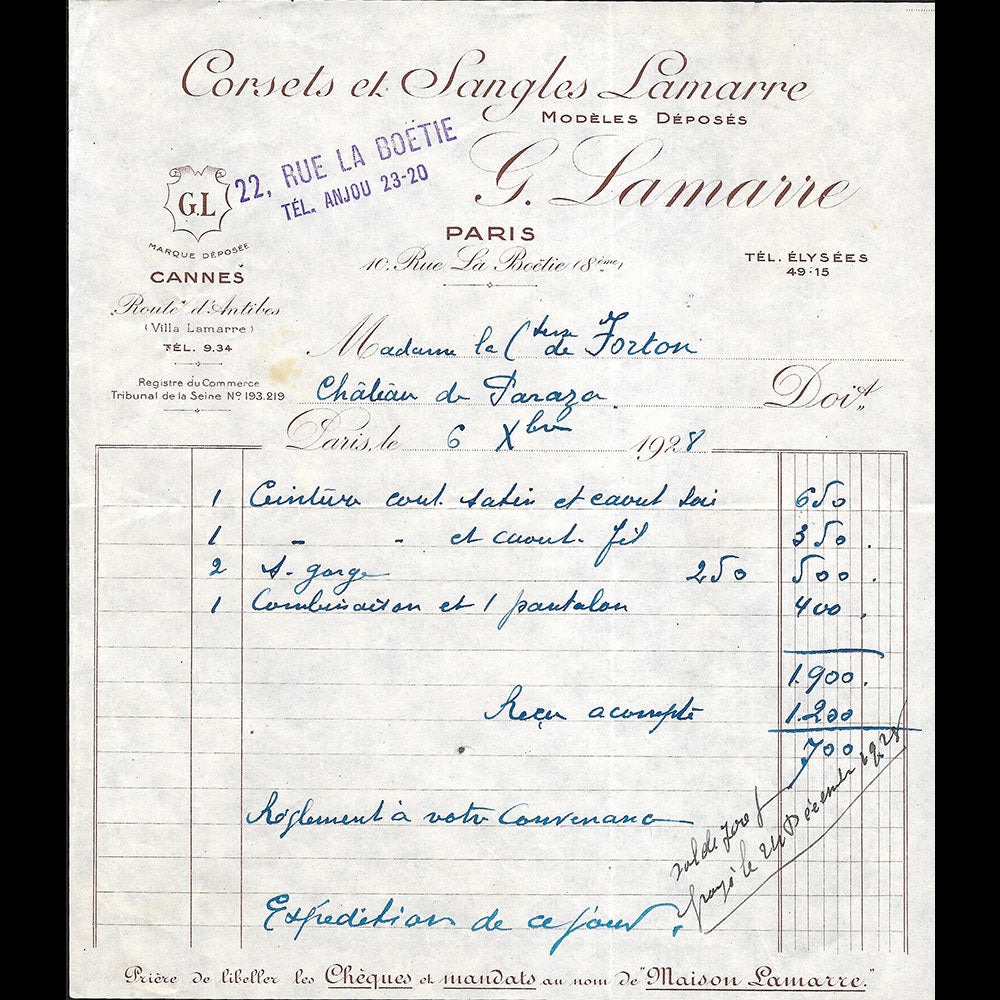 Corsets et Sangles Lamarre
MODÈLES DÉPOSÉS
22, RUE LA BOËTIE
TÉL. ANJOU 23-20
G. Lamarre
G.L
MARQUE DÉPOSÉE
PARIS
10. Rue La Boëtie (8ème)
TÉL. ÉLYSÉES
49:15
CANNES
Route d'Antibes
(Villa Lamarre)
TÉL. 9.34
Registre du Commerce
Tribunal de la Seine No 193.219
Madame la Ctesse de Forton
Château de Paraza
Doit
Paris, le 6 Xbre 1928
1 Ceinture cout. satin et caout soie 650
1 - - et caout. fil 350.
2 S-gorge 250 500.
1 Combinaison et 1 pantalon 400.
1.900.
Reçu acompte 1.200
700
Règlement à votre Convenance
solde 700 f
payé le 24 Décembre 1928
Expédition de ce jour.
Prière de libeller les Chèques et mandats au nom de "Maison Lamarre."